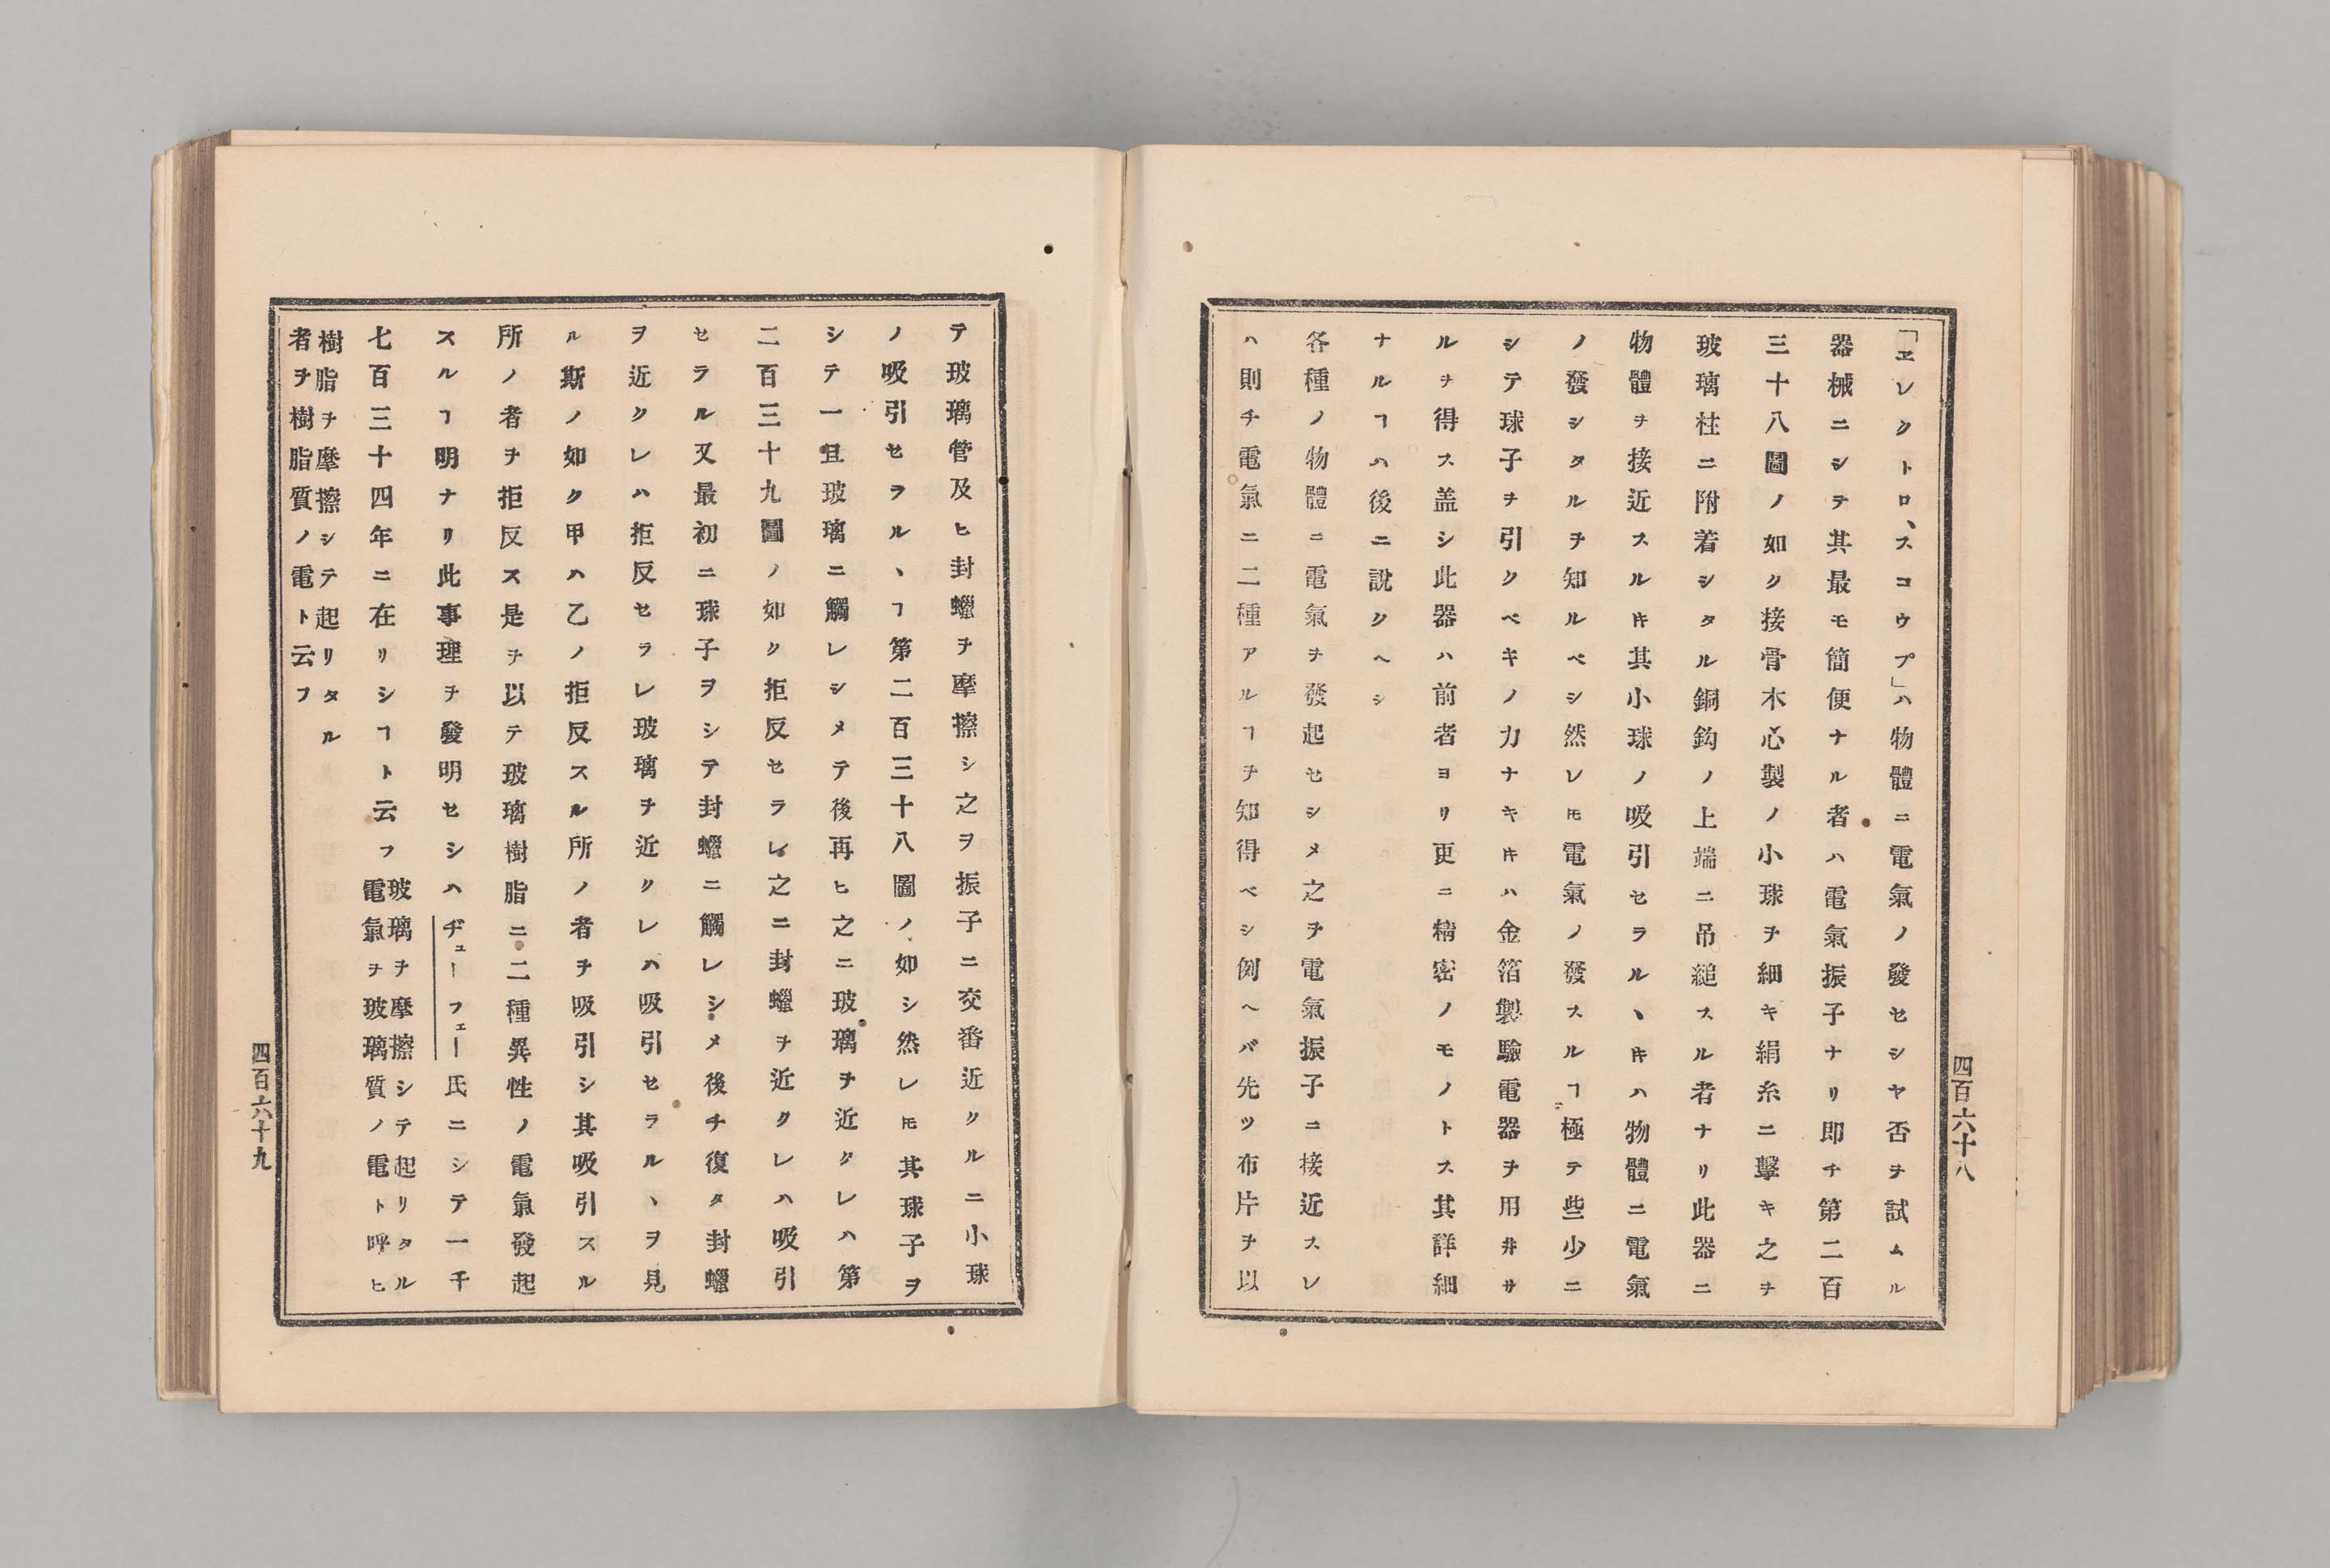 四百六十八
「ヱレクトロ、スコウプ」ハ物體ニ電氣ノ發セシヤ否ヲ試ムル
器械ニシテ其最モ簡便ナル者ハ電氣振子ナリ即チ第二百
三十八圖ノ如ク接骨木心製ノ小球ヲ細キ絹糸ニ擊キ之ヲ
玻璃柱ニ附着シタル銅鈎ノ上端ニ吊縋スル者ナリ此器ニ
物體ヲ接近スルキ其小球ノ吸引セラル、キハ物體ニ電氣
ノ發シタルヲ知ルベシ然レ𪜈電氣ノ發スルヿ極テ些少ニ
シテ球子ヲ引クベキノ力ナキキハ金箔製驗電器ヲ用井サ
ルヲ得ス盖シ此器ハ前者ヨリ更ニ精密ノモノトス其詳細
ナルヿハ後ニ說クヘシ
各種ノ物體ニ電氣ヲ發起セシメ之ヲ電氣振子ニ接近スレ
ハ則チ電氣ニ二種アルヿヲ知得ベシ例ヘバ先ツ布片ヲ以
テ玻璃管及ヒ封蠟ヲ摩擦シ之ヲ振子ニ交番近クルニ小球
ノ吸引セラル、ヿ第二百三十八圖ノ如シ然レ𪜈其球子ヲ
シテ一旦玻璃ニ觸レシメテ後再ヒ之ニ玻璃ヲ近クレハ第
二百三十九圖ノ如ク拒反セラレ之ニ封蠟ヲ近クレハ吸引
セラル又最初ニ球子ヲシテ封蠟ニ觸レシメ後チ復タ封蠟
ヲ近クレハ拒反セラレ玻璃ヲ近クレハ吸引セラル、ヲ見
ル斯ノ如ク甲ハ乙ノ拒反スル所ノ者ヲ吸引シ其吸引スル
所ノ者ヲ拒反ス是ヲ以テ玻璃樹脂ニ二種異性ノ電氣發起
スルヿ明ナリ此事理ヲ發明セシハヂューフェー氏ニシテ一千
七百三十四年ニ在リシヿト云フ
玻璃ヲ摩擦シテ起リタル
電氣ヲ玻璃質ノ電ト呼ヒ
樹脂ヲ摩擦シテ起リタル
者ヲ樹脂質ノ電ト云フ
四百六十九